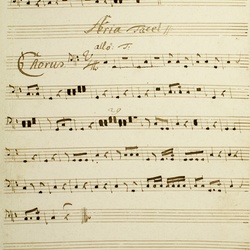 Aria tacet
allo:
Chorus